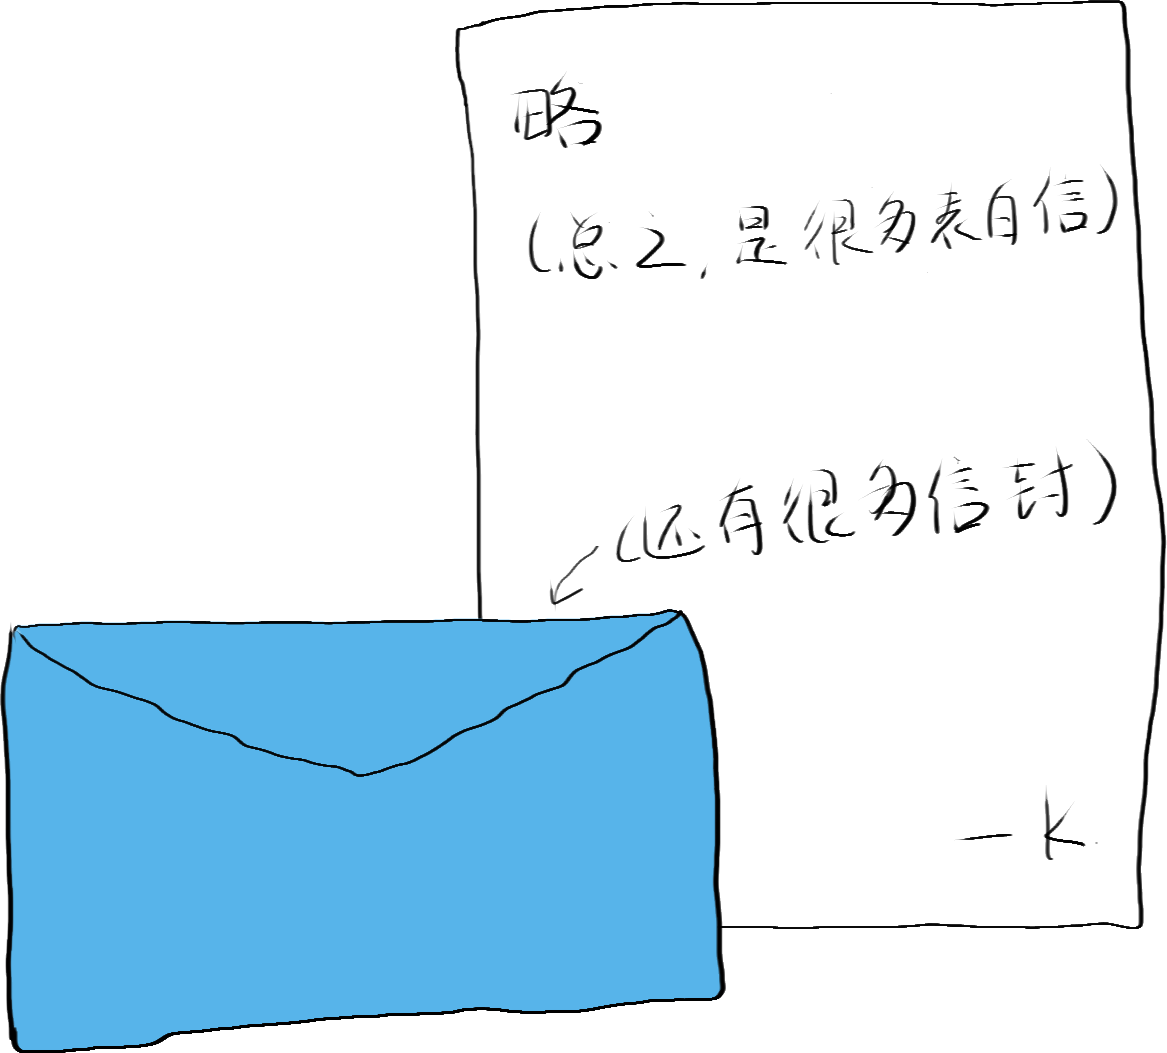 略
(总之,是很多表白信)
(还有很多信封)
— K